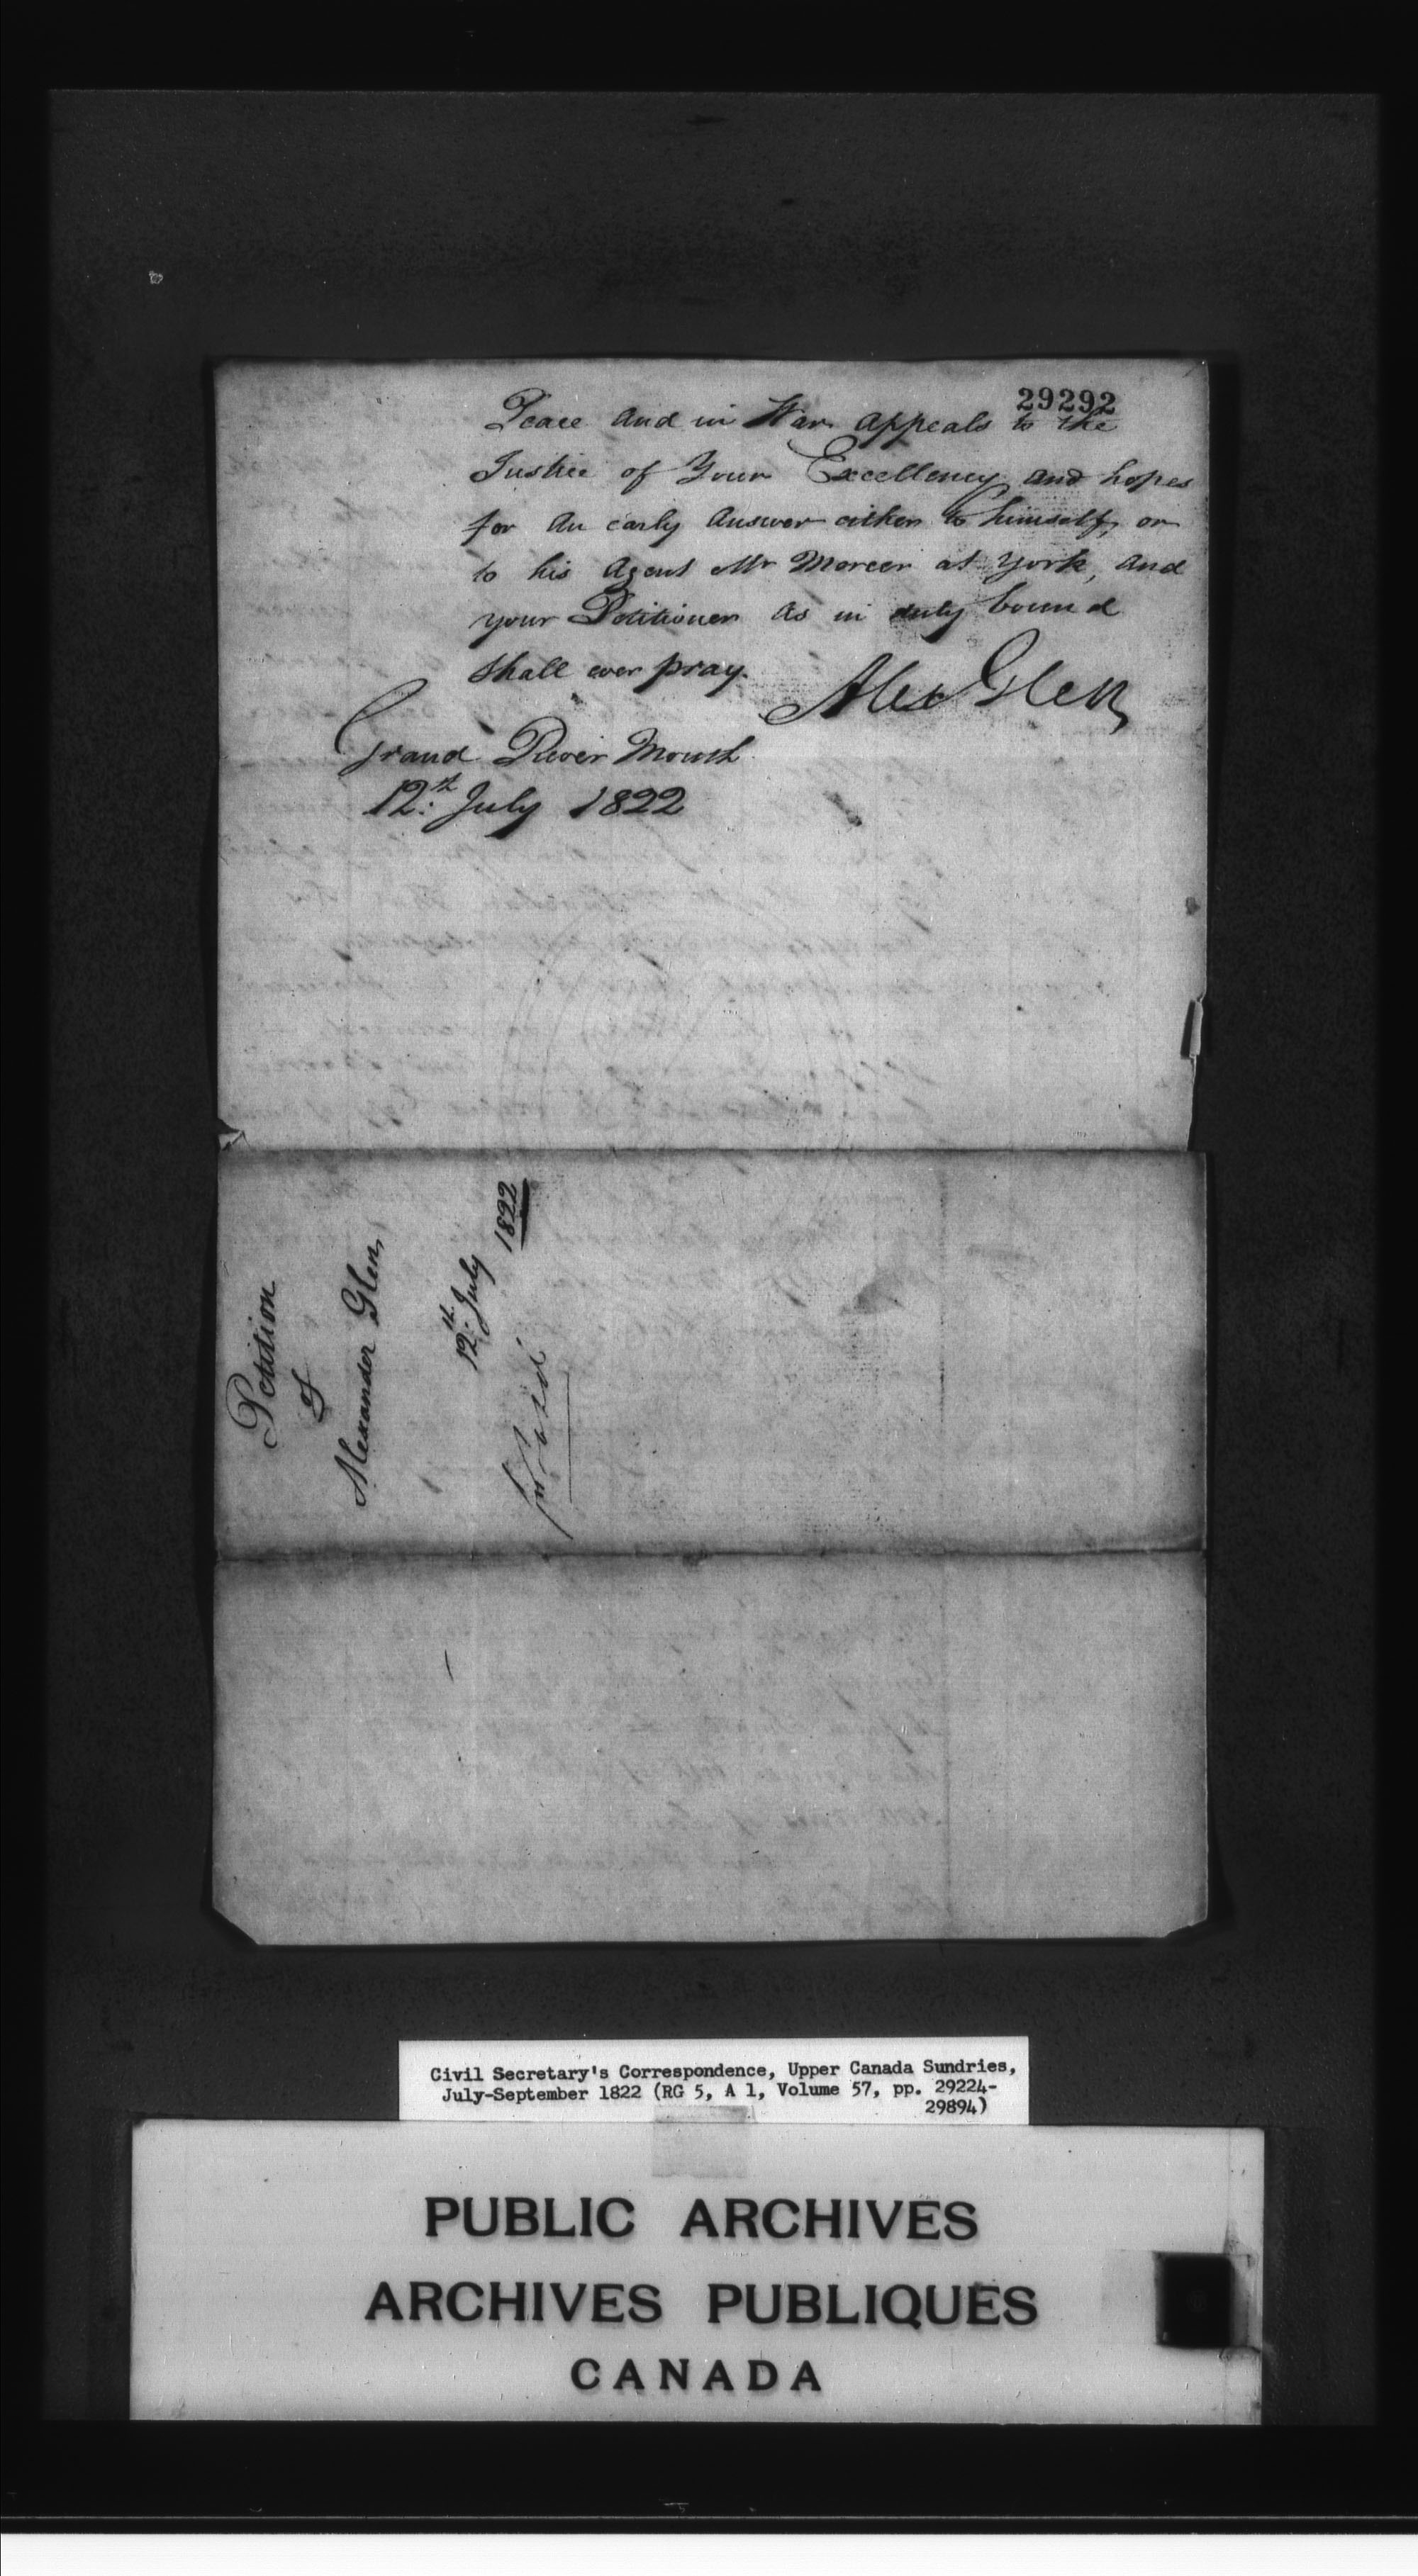 29292
Peace and in War appeals to the
Justice of Your Excellency and hopes
for an early answer either to himself, or
to his Agent Mr Mercer at York, and
your Petitioner as in duty bound
shall ever pray.
Alex Glen
Grand River Mouth
12th: July 1822
Petition
of
Alexander Glen,
12th: July
1822
Civil Secretary's Correspondence, Upper Canada Sundries,
July-September 1822 (RG 5, A 1, Volume 57, pp. 29224-
29894)
PUBLIC ARCHIVES
ARCHIVES PUBLIQUES
CANADA